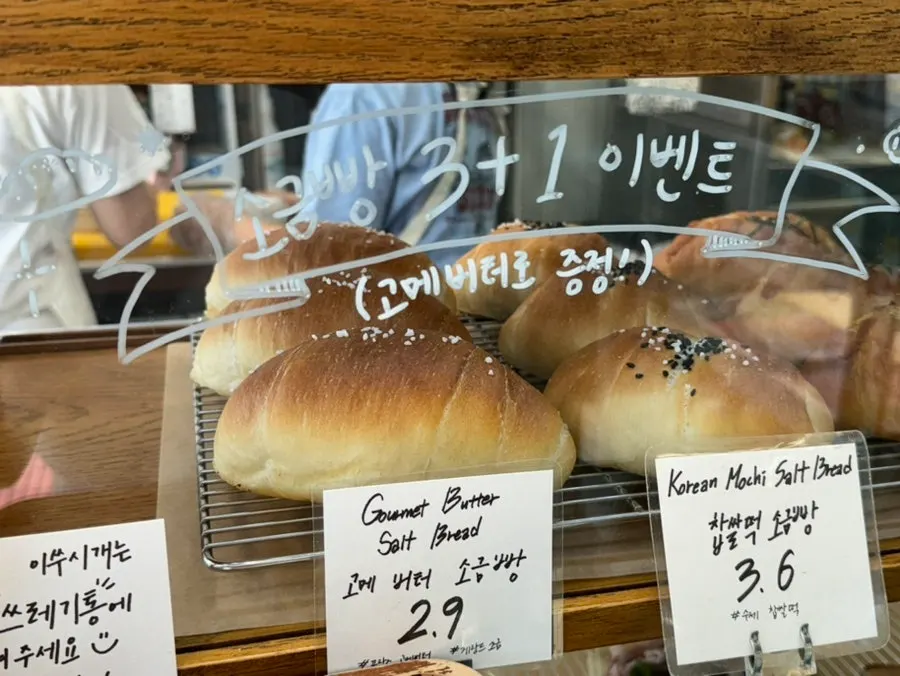 소금빵 3+1 이벤트
(고메버터로 증정!)
Gourmet Butter
Salt Bread
고메 버터 소금빵
2.9
#게랑드 소금
Korean Mochi Salt Bread
찹쌀떡 소금빵
3.6
#수제 찹쌀떡
이쑤시개는
쓰레기통에
주세요